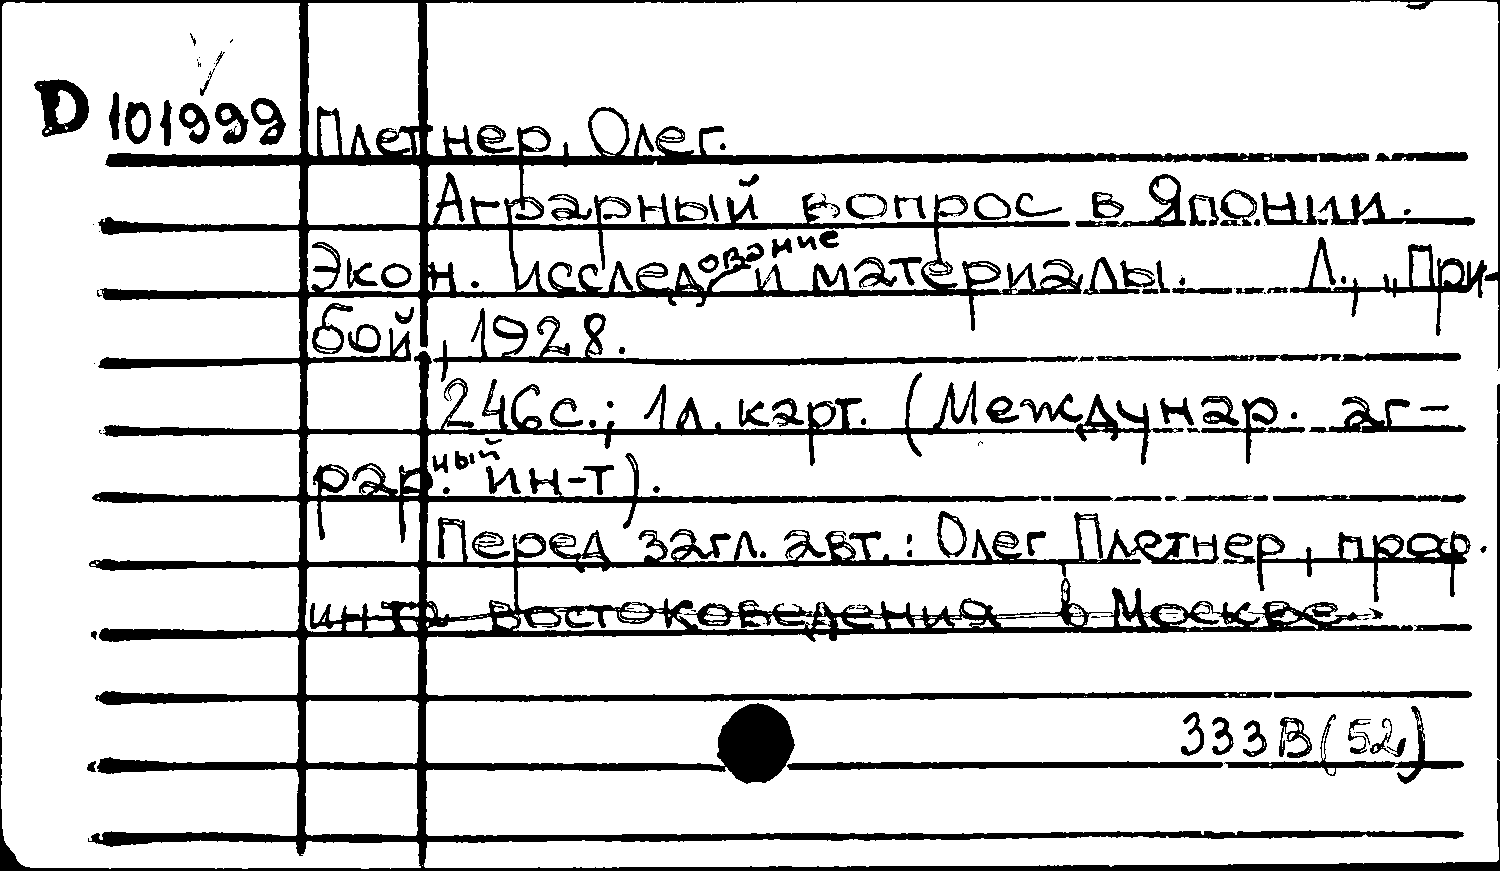 D 101999 Плетнер, Олег.
Аграрный вопрос в Японии.
Экон. исследование и материалы. Л., „При-
бой, 1928.
246с.; 1л. карт. (Междунар. аг-
рар.ный ин-т).
Перед загл. авт.: Олег Плетнер, проф.
инта востоковедения в Москве.
333В(52)